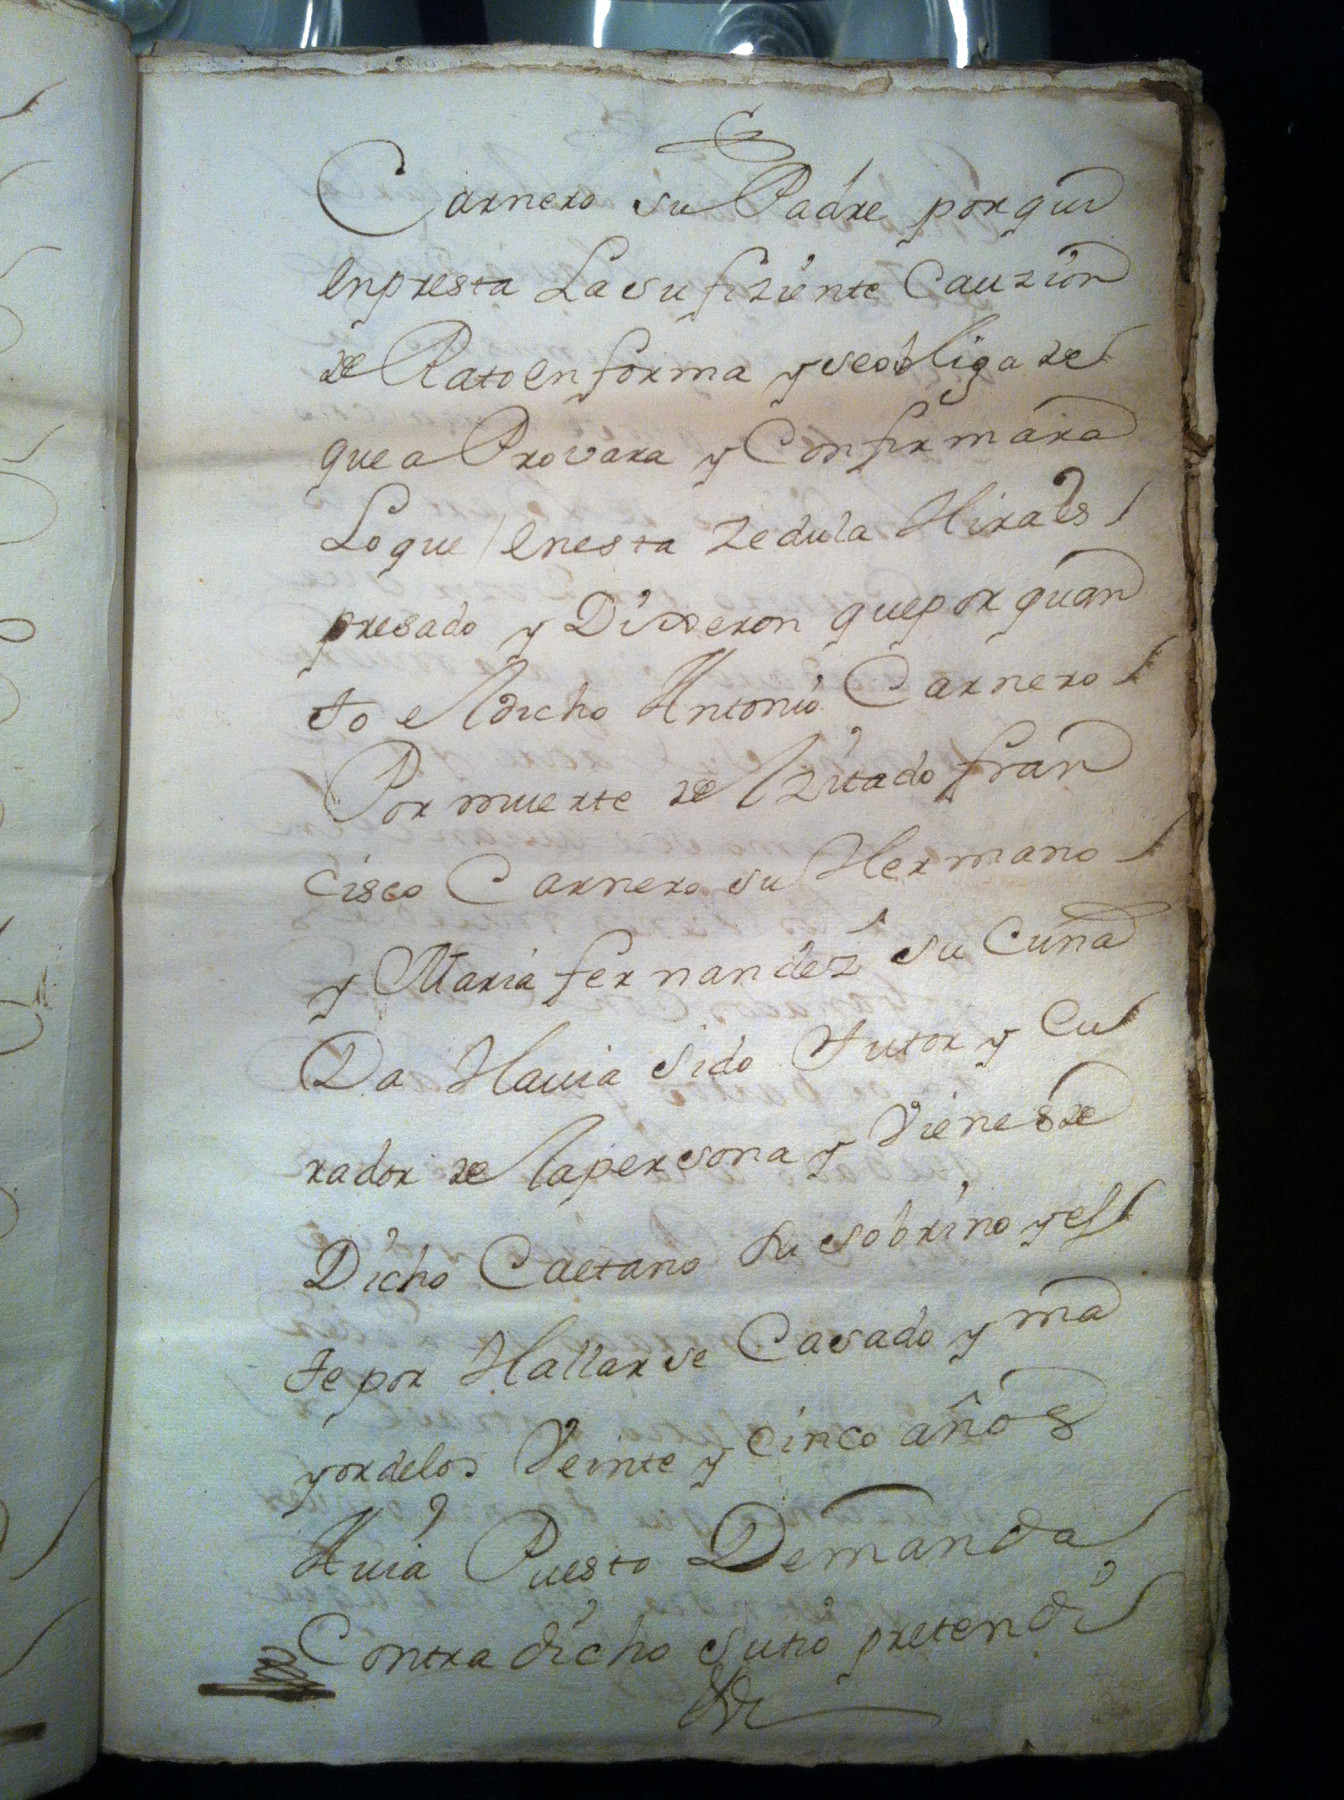 Carnero su Padre por qui
enpresta La sufiziente Cauzion
de Rato en forma y se obliga de
que a Provara y Confirmara
Lo que enesta Zedula Hira es
presado y Dixeron que por quan
to el dicho Antonio Carnero
Por muerte del Zitado fran
cisco Carnero su Hermano
y Maria fernandez su Cuña
Da Havia sido tutor y Cu
rador de la persona y Vienes de
Dicho Caetano su sobrino y es
te por Hallarse Casado y ma
yor de los Veinte y cinco años
Avia Puesto Demanda
Contra dicho su tio pretendi